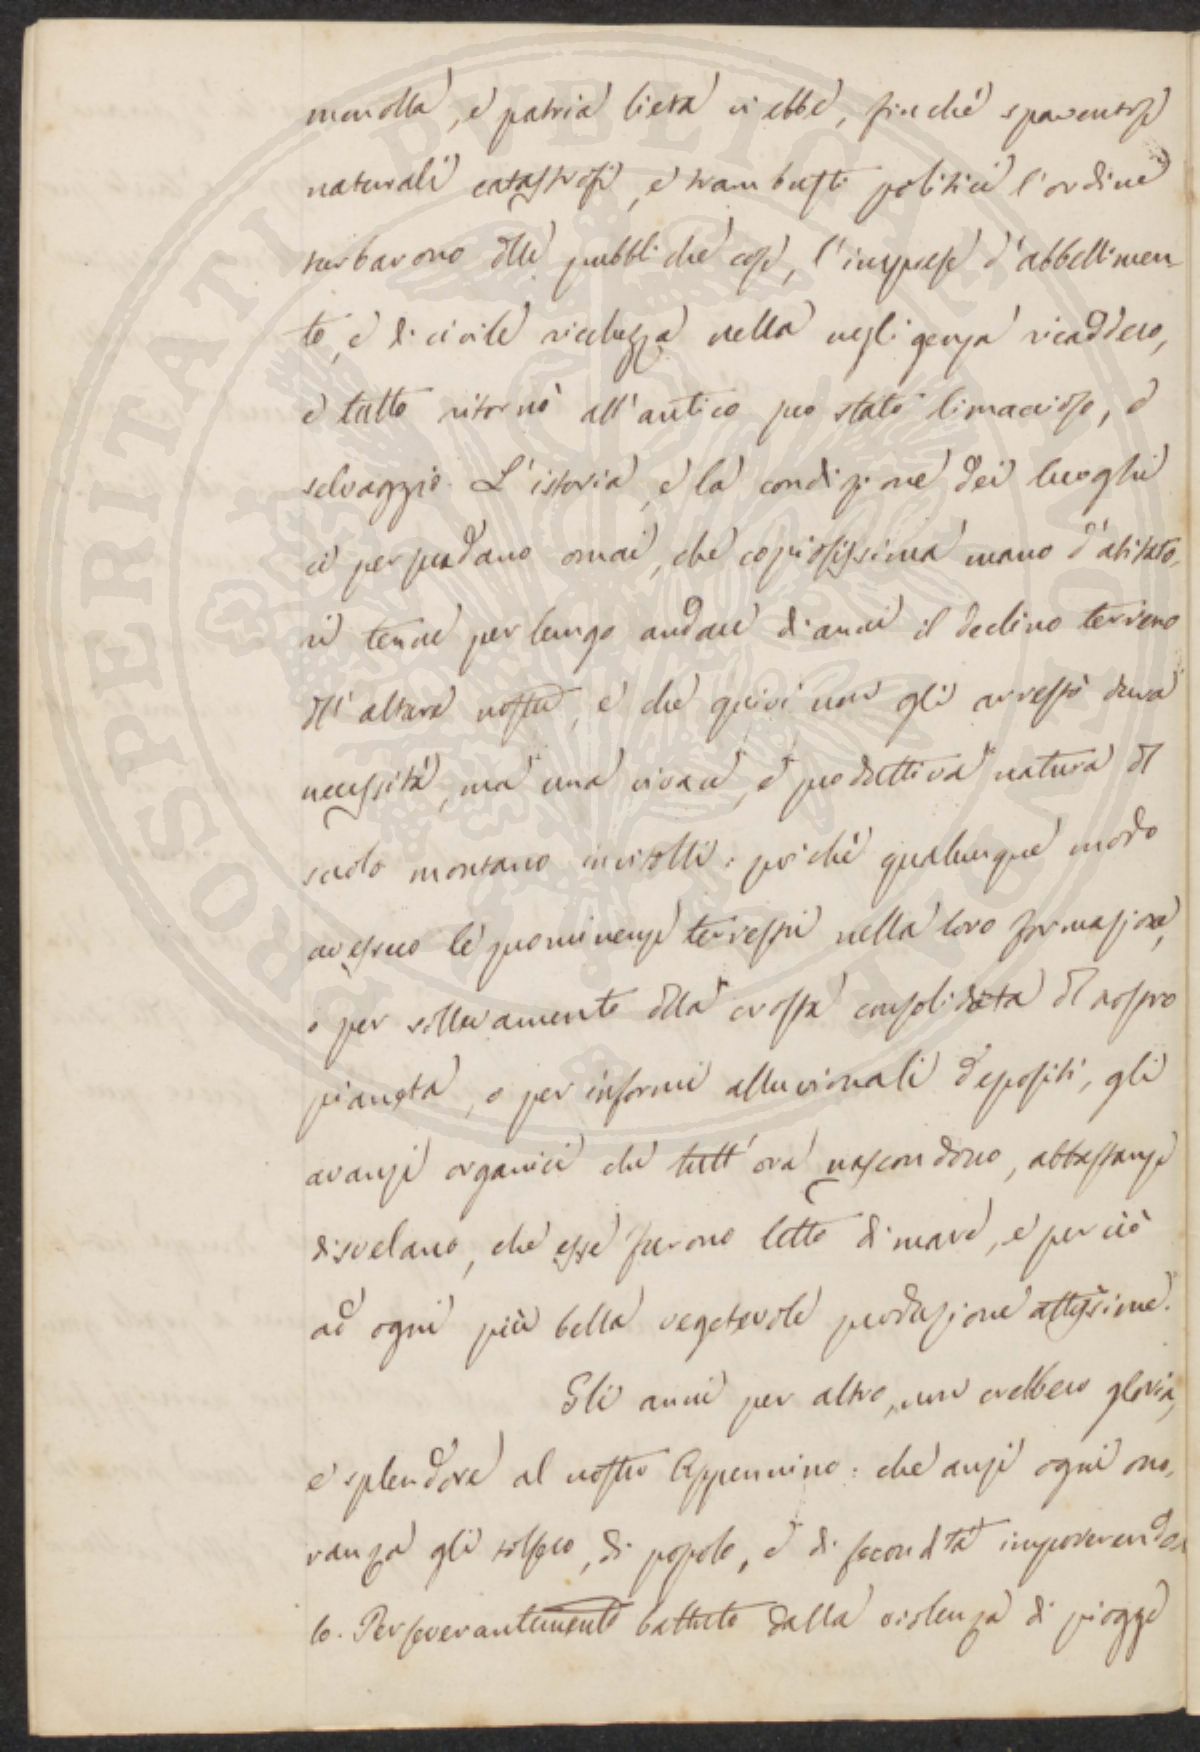 monella, e patria lieta vi ebbe, finché spaventose
naturali catastrofi, e trambusti politici l'ordine
turbarono delle pubbliche cose, l'imprese d'abbellimen-
to, e di civile ricchezza nella negligenza ricaddero,
e tutto ritornò all'antico suo stato limaccioso, e
selvaggio. L'istoria, e la condizione dei luoghi
ci persuadano omai, che copiosissima mano d'abitato-
ri tenne per lungo andare d'anni il declino terreno
dell'alture nostre, e che quivi non gli arrestò dura
necessità, ma una vivace, e produttiva natura del
suolo montano invitolli: poiché qualunque modo
avessero le prominenze terrestri nella loro formazione,
o per sollevamento della crosta consolidata del nostro
pianeta, o per informi alluvionali depositi, gli
avanzi organici che tutt'ora nascondono, abbastanza
disvelano, che esse furono letto di mare, e perciò
ad ogni più bella vegetevole produzione attissime.
Gli anni per altro, non crebbero gloria,
e splendore al nostro Appennino: che anzi ogni ono-
ranza gli tolsero, di popolo, e di fecondità impoverendo-
lo. Perseverantemente battuto dalla violenza di piogge
PROSPERITATI PVBLICAE AVGENDAE